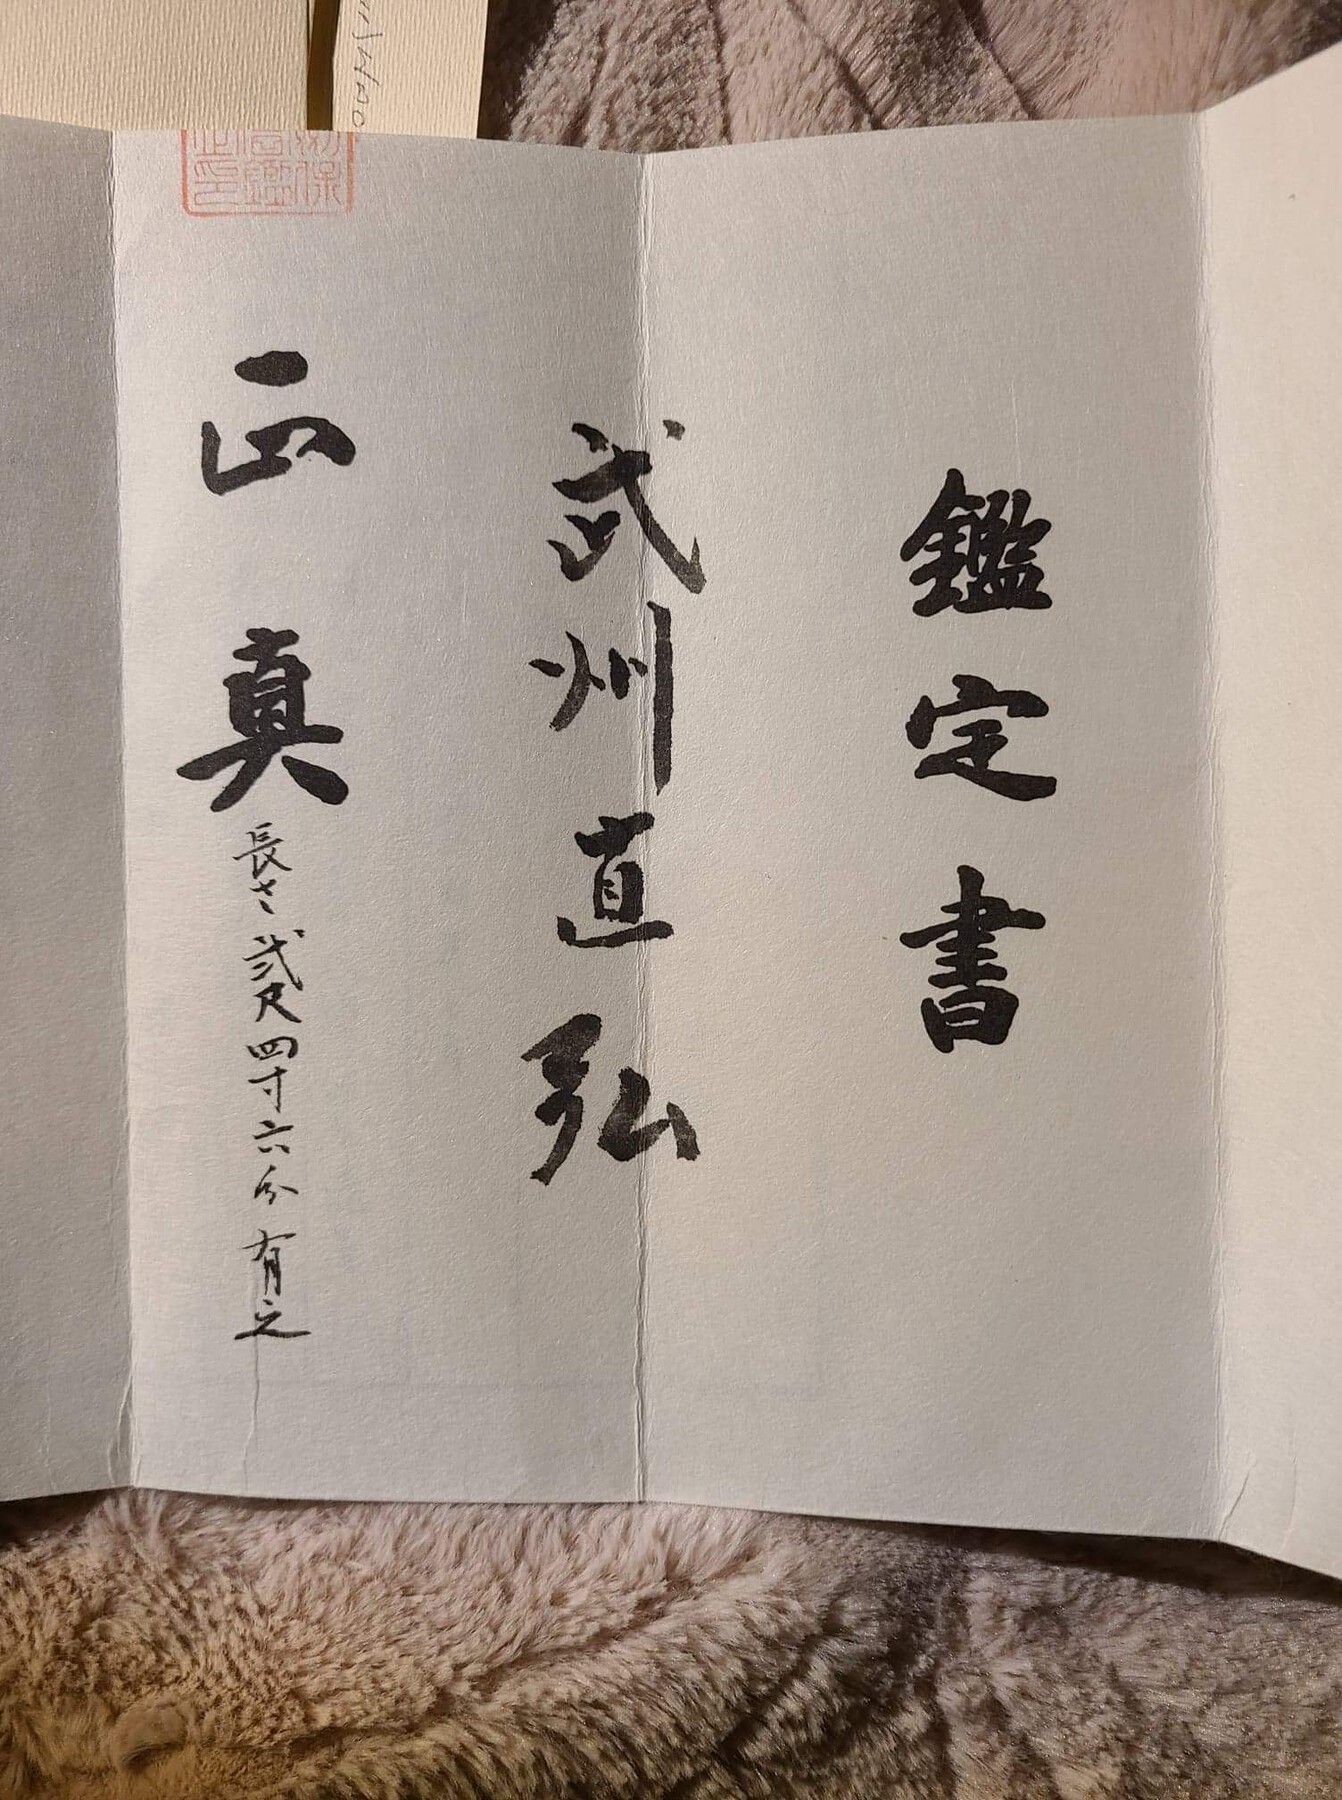 鑑定書
武州直弘
正真 長さ弐尺四寸六分有之